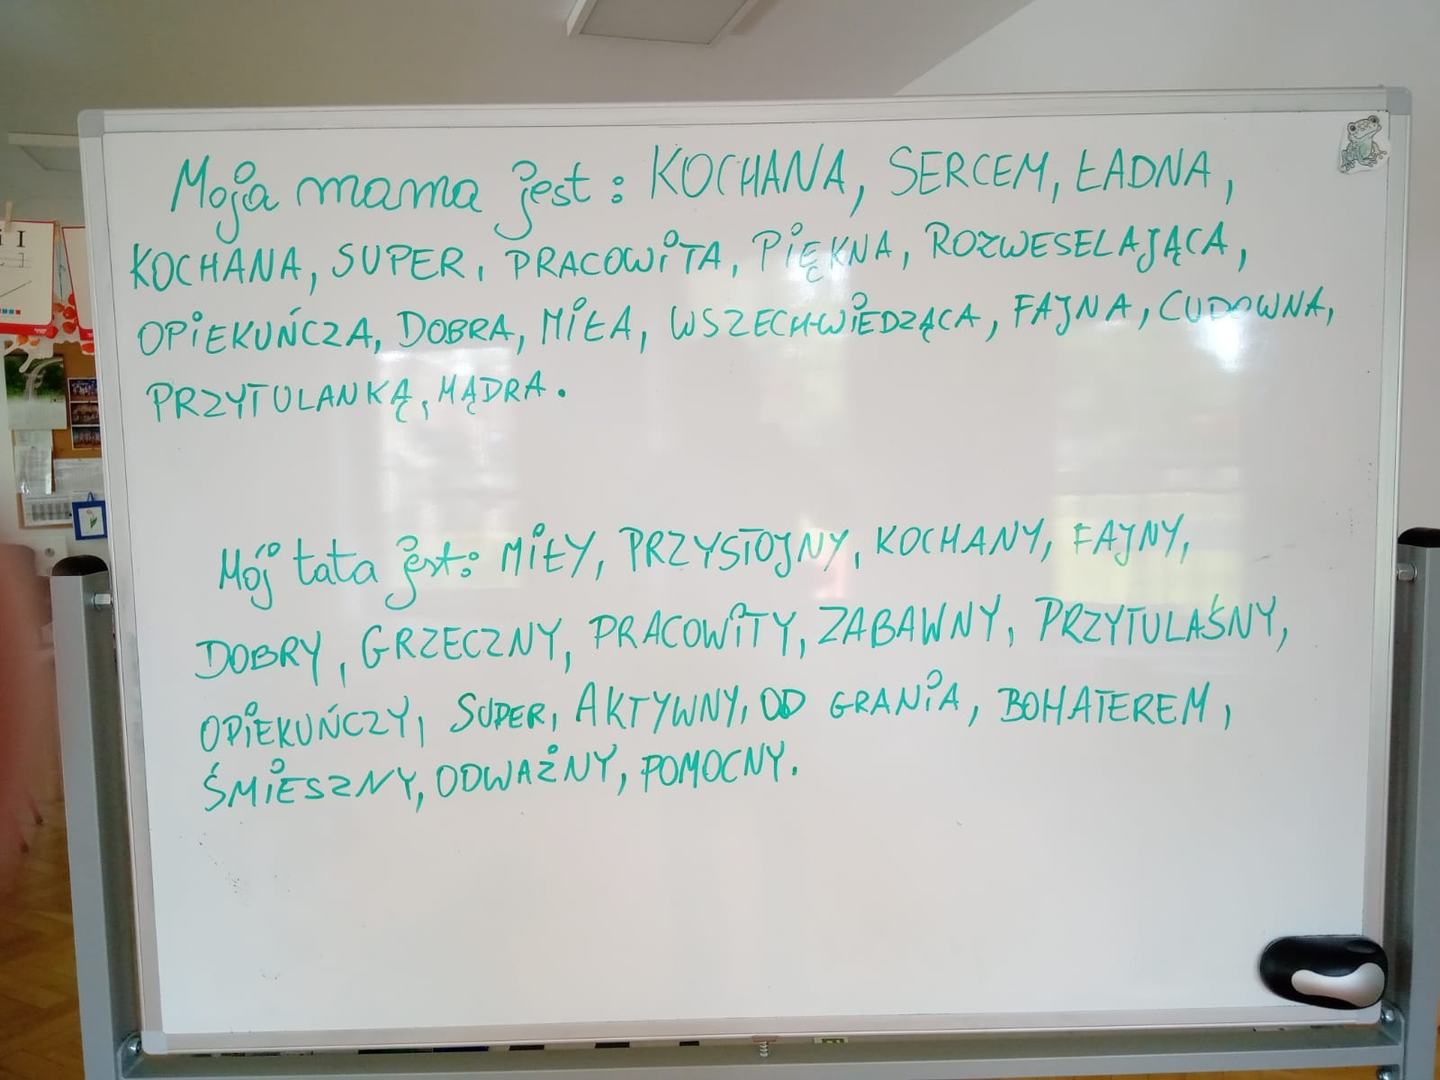 Moja mama jest: KOCHANA, SERCEM, ŁADNA,
KOCHANA, SUPER, PRACOWITA, PIĘKNA, ROZWESELAJĄCA,
OPIEKUŃCZA, DOBRA, MIŁA, WSZECHWIEDZĄCA, FAJNA, CUDOWNA,
PRZYTULANKĄ, MĄDRA.
Mój tata jest: MIŁY, PRZYSTOJNY, KOCHANY, FAJNY,
DOBRY, GRZECZNY, PRACOWITY, ZABAWNY, PRZYTULAŚNY,
OPIEKUŃCZY, SUPER, AKTYWNY, OD GRANIA, BOHATEREM,
ŚMIESZNY, ODWAŻNY, POMOCNY.